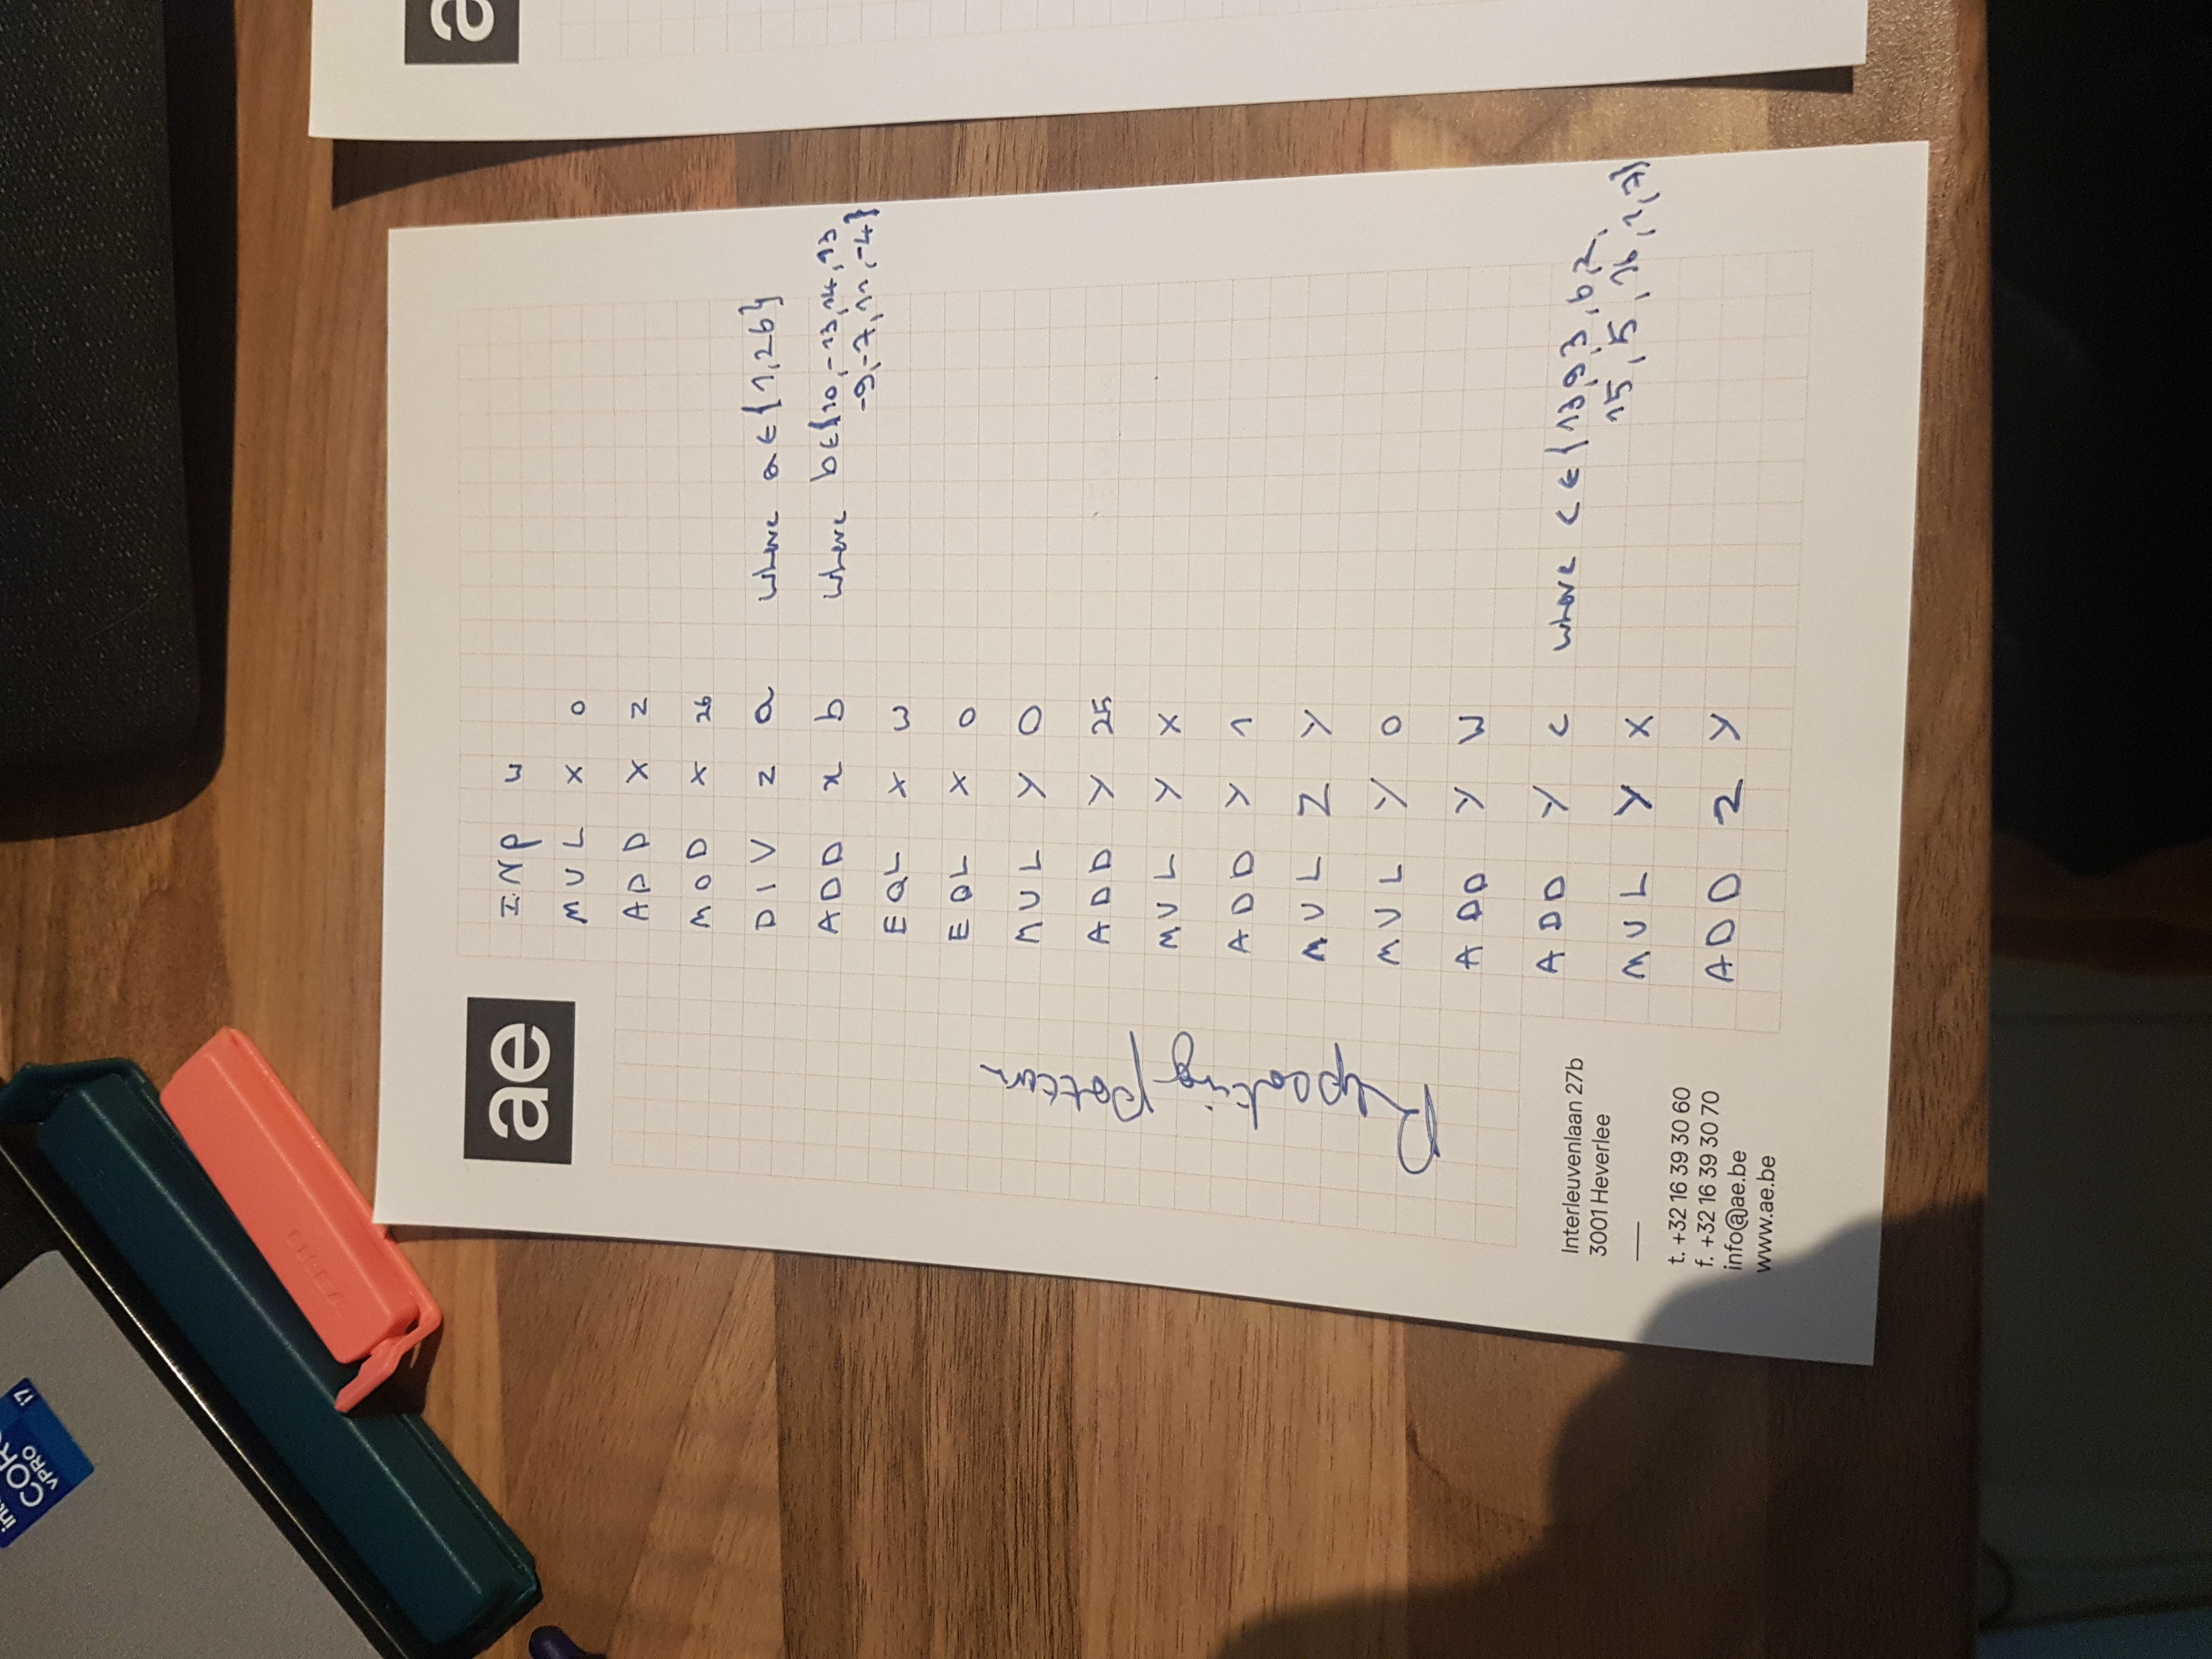 CORE
vPRO
i7
ae
INP W
MUL X 0
ADD X Z
MOD X 26
DIV Z a where a ∈ {1,26}
ADD x b where b ∈ {10, -13, 14, 13
-9, -7, 11, -4}
EQL X W
EQL X 0
MUL Y 0
ADD Y 25
MUL Y X
ADD Y 1
MUL Z Y
MUL Y 0
ADD Y W
ADD Y c where c ∈ {13,9,3,6,2,
15, 5, 16, 1, 7}
MUL Y X
ADD Z Y
Repeating pattern
Interleuvenlaan 27b
3001 Heverlee
t. +32 16 39 30 60
f. +32 16 39 30 70
info@ae.be
www.ae.be